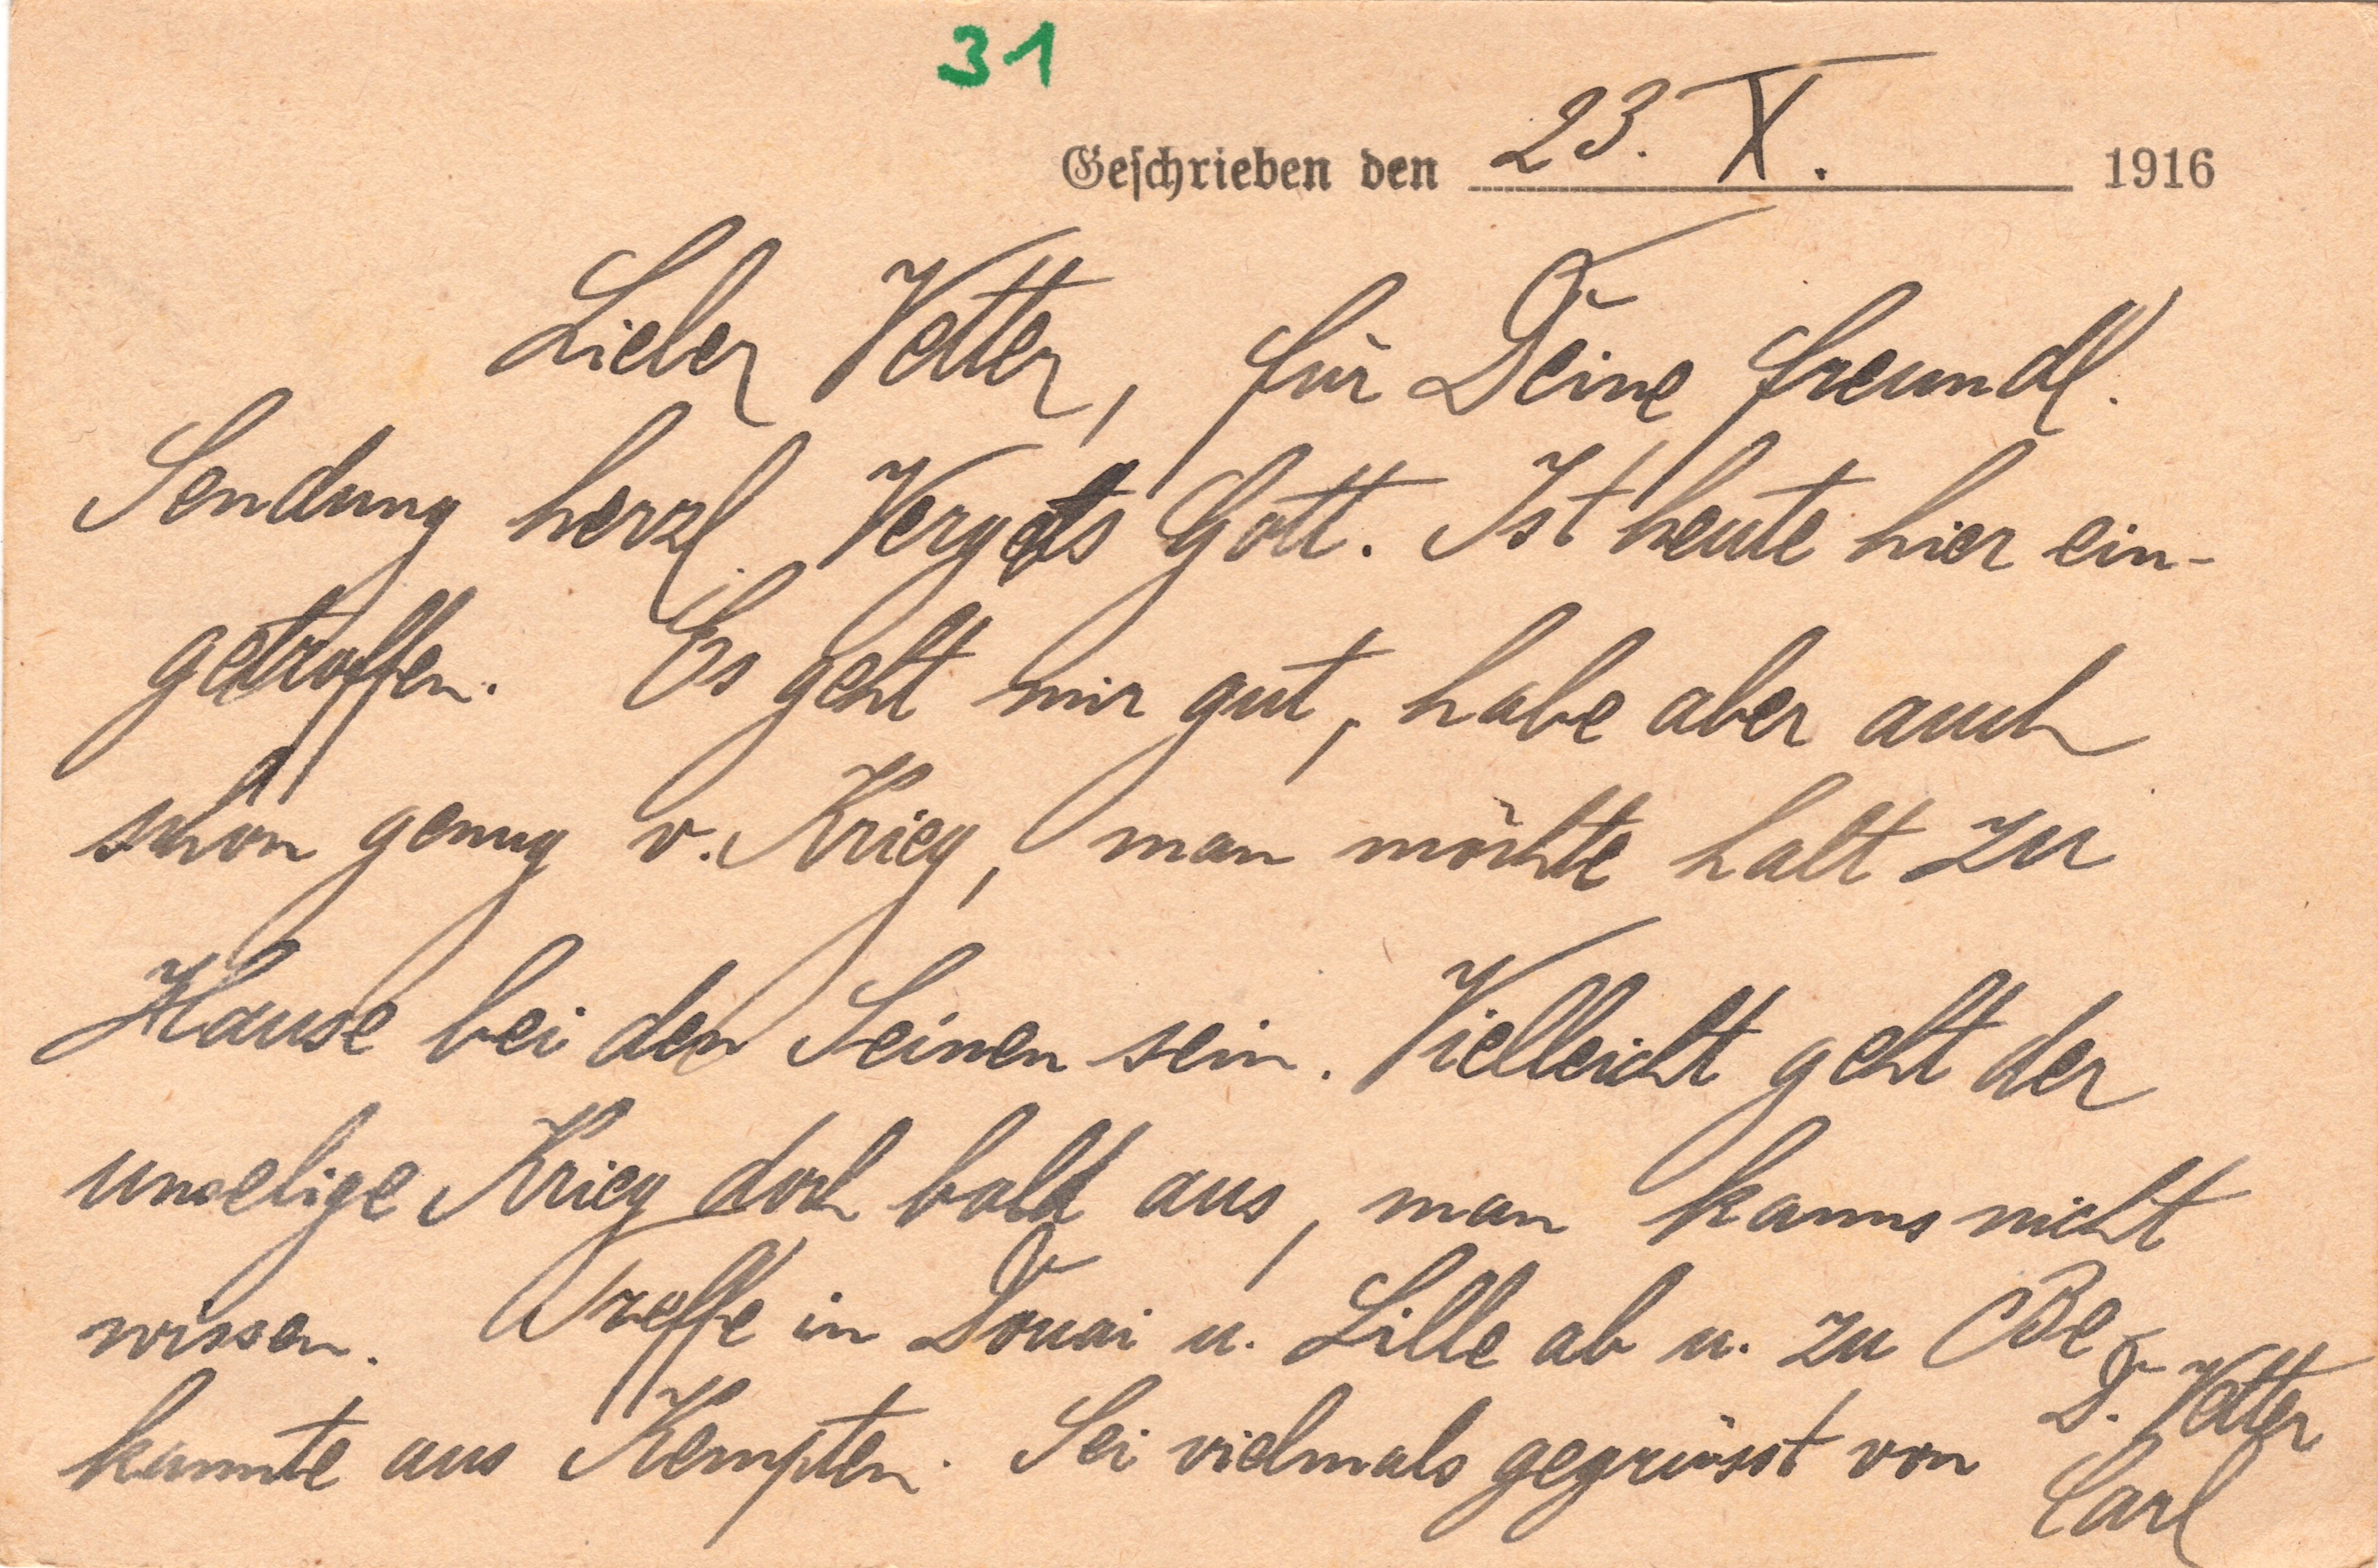 31
Geschrieben den 23. X. 1916
Lieber Vetter, für Deine freundl.
Sendung herzl. Vergelts Gott. Ist heute hier ein-
getroffen. Es geht mir gut, habe aber auch
schon genug v. Krieg, man möchte halt zu
Hause bei den Seinen sein. Vielleicht geht der
unselige Krieg doch bald aus, man kanns nicht
wissen. Treffe in Douai u. Lille ab u. zu Be
kannte aus Kempten. Sei vielmals gegrüsst von D. Vetter
Carl